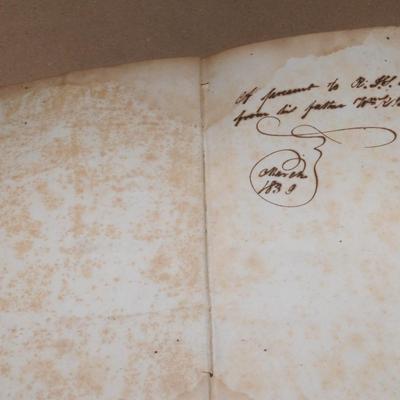 A present to R. H.
from his father Wm.
March
1839